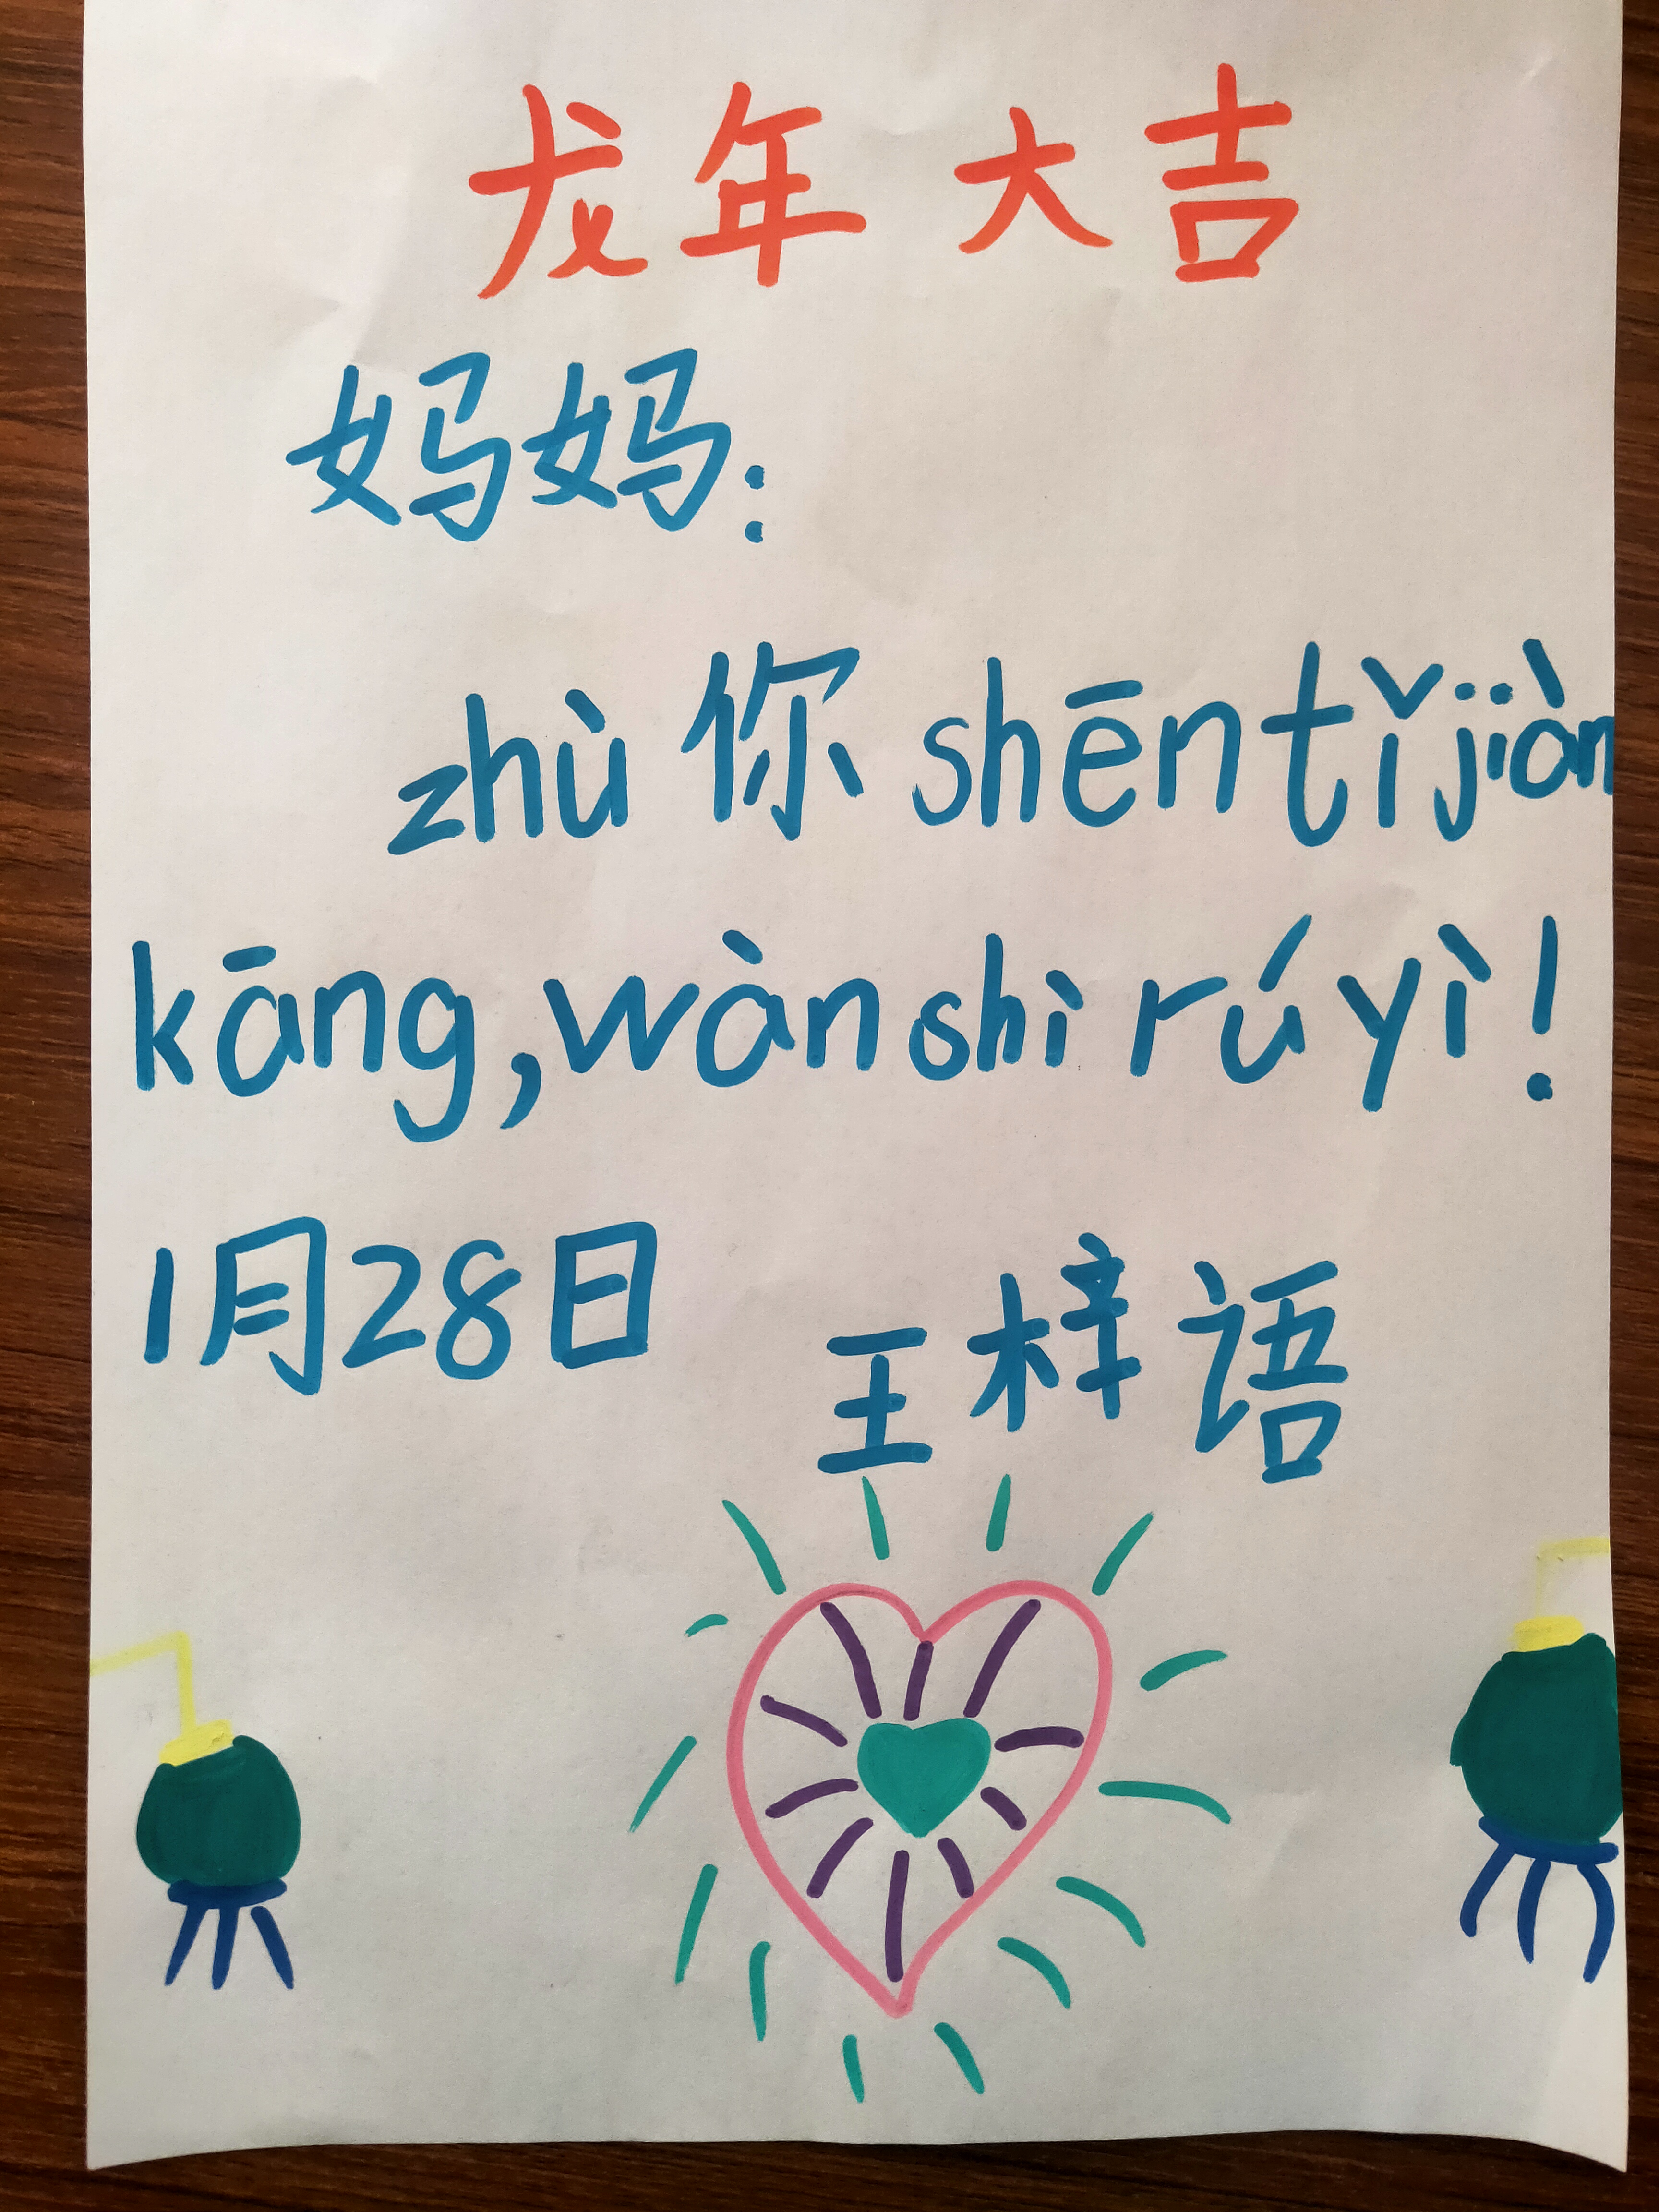 龙年大吉
妈妈：
zhù 你 shēn tǐ jiàn
kāng, wàn shì rú yì!
1月28日
王梓语